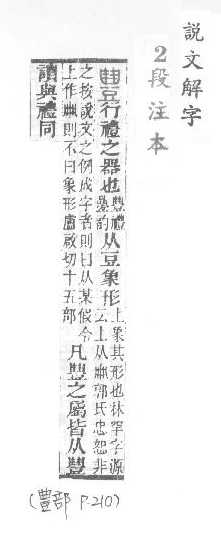 說文解字
2段注本
豊行禮之器也豊禮
疊韵从豆象形上象其形也林罕字源
云上从 郭氏忠恕非
之按說文之例成字者則曰从某假令
上作 則不曰象形盧啟切十五部
凡豊之屬皆从豊
讀與禮同
(豊部 P.210)